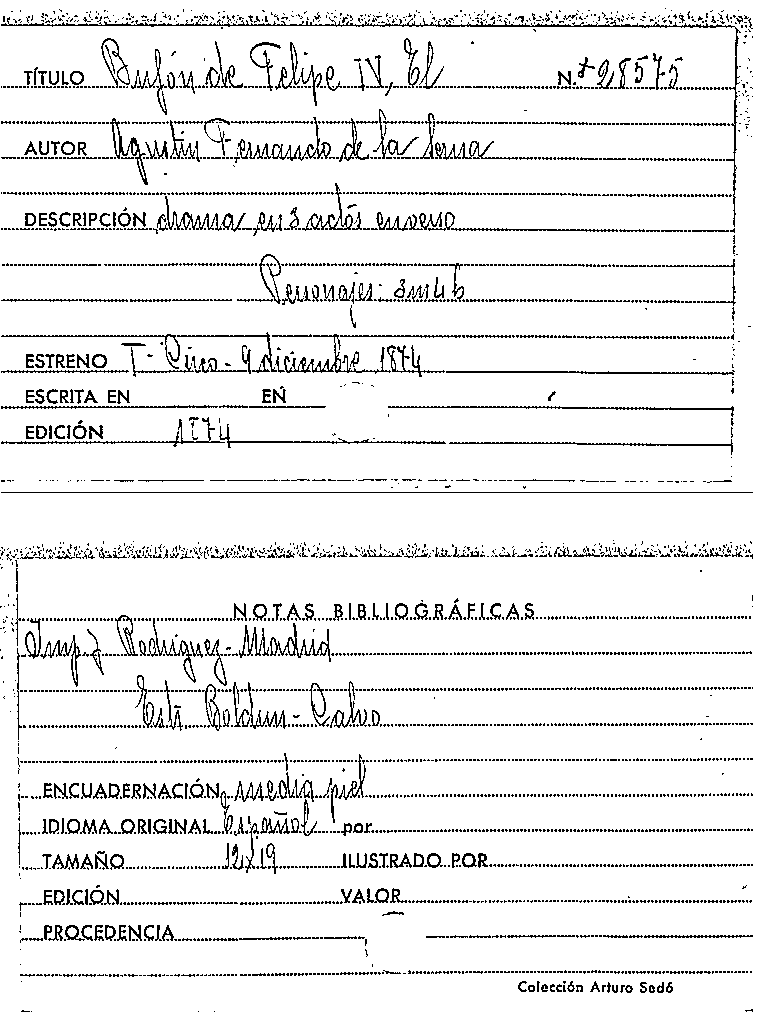 TÍTULO Bufón de Felipe IV, El N.º +28575
AUTOR Agustín Fernando de la Serna
DESCRIPCIÓN drama en 3 actos en verso
Personajes: 3m 4h
ESTRENO T- Circo - 9 diciembre 1874
ESCRITA EN EN
EDICIÓN 1874
NOTAS BIBLIOGRÁFICAS
Imp. J Rodriguez - Madrid
Boldun - Calvo
ENCUADERNACIÓN media piel
IDIOMA ORIGINAL Español por
TAMAÑO 12x19 ILUSTRADO POR
EDICIÓN VALOR
PROCEDENCIA
Colección Arturo Sedó